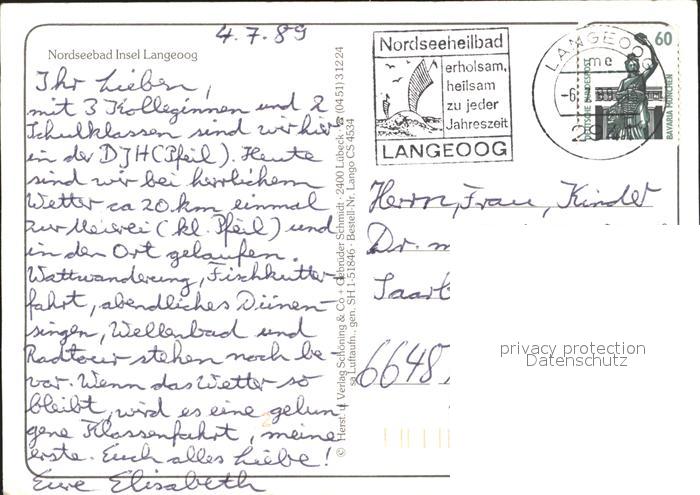 4.7.89
Nordseebad Insel Langeoog
Ihr Lieben,
mit 3 Kolleginnen und 2
Schulklassen sind wir hier
in der DJH (Pfeil). Heute
sind wir bei herrlichem
Wetter ca 20 km einmal
zur Meierei (kl. Pfeil) und
in den Ort gelaufen.
Wattwanderung, Fischkutter-
fahrt, abendliches Dünen-
singen, Wellenbad und
Radtour stehen noch be-
vor. Wenn das Wetter so
bleibt, wird es eine gelun
gene Klassenfahrt, meine
erste. Euch alles Liebe!
Eure Elisabeth
© Herst. u. Verlag Schöning & Co + Gebrüder Schmidt · 2400 Lübeck · ☎ (0451) 31224
sa Luftaufn., gen. SH 1-51846 · Bestell-Nr. Lango CS 4534
Nordseeheilbad
erholsam,
heilsam
zu jeder
Jahreszeit
LANGEOOG
LANGEOOG
me
-6.
60
DEUTSCHE BUNDESPOST
BAVARIA MÜNCHEN
Herrn, Frau, Kinder
Dr. m
Saarb
6648
privacy protection
Datenschutz